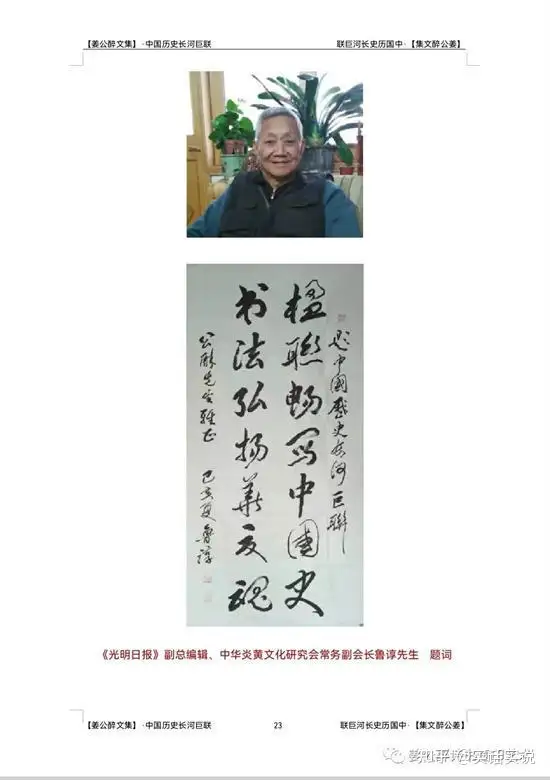 【姜公醉文集】·中国历史长河巨联 联巨河长史历国中·【集文醉公姜】
题中國歷史长河巨聯
楹聯畅写中國史
书法弘扬華夏魂
公醉先生雅正 己亥夏 鲁谆
《光明日报》副总编辑、中华炎黄文化研究会常务副会长鲁谆先生 题词
【姜公醉文集】·中国历史长河巨联 23 联巨河长史历国中·【集文醉公姜】